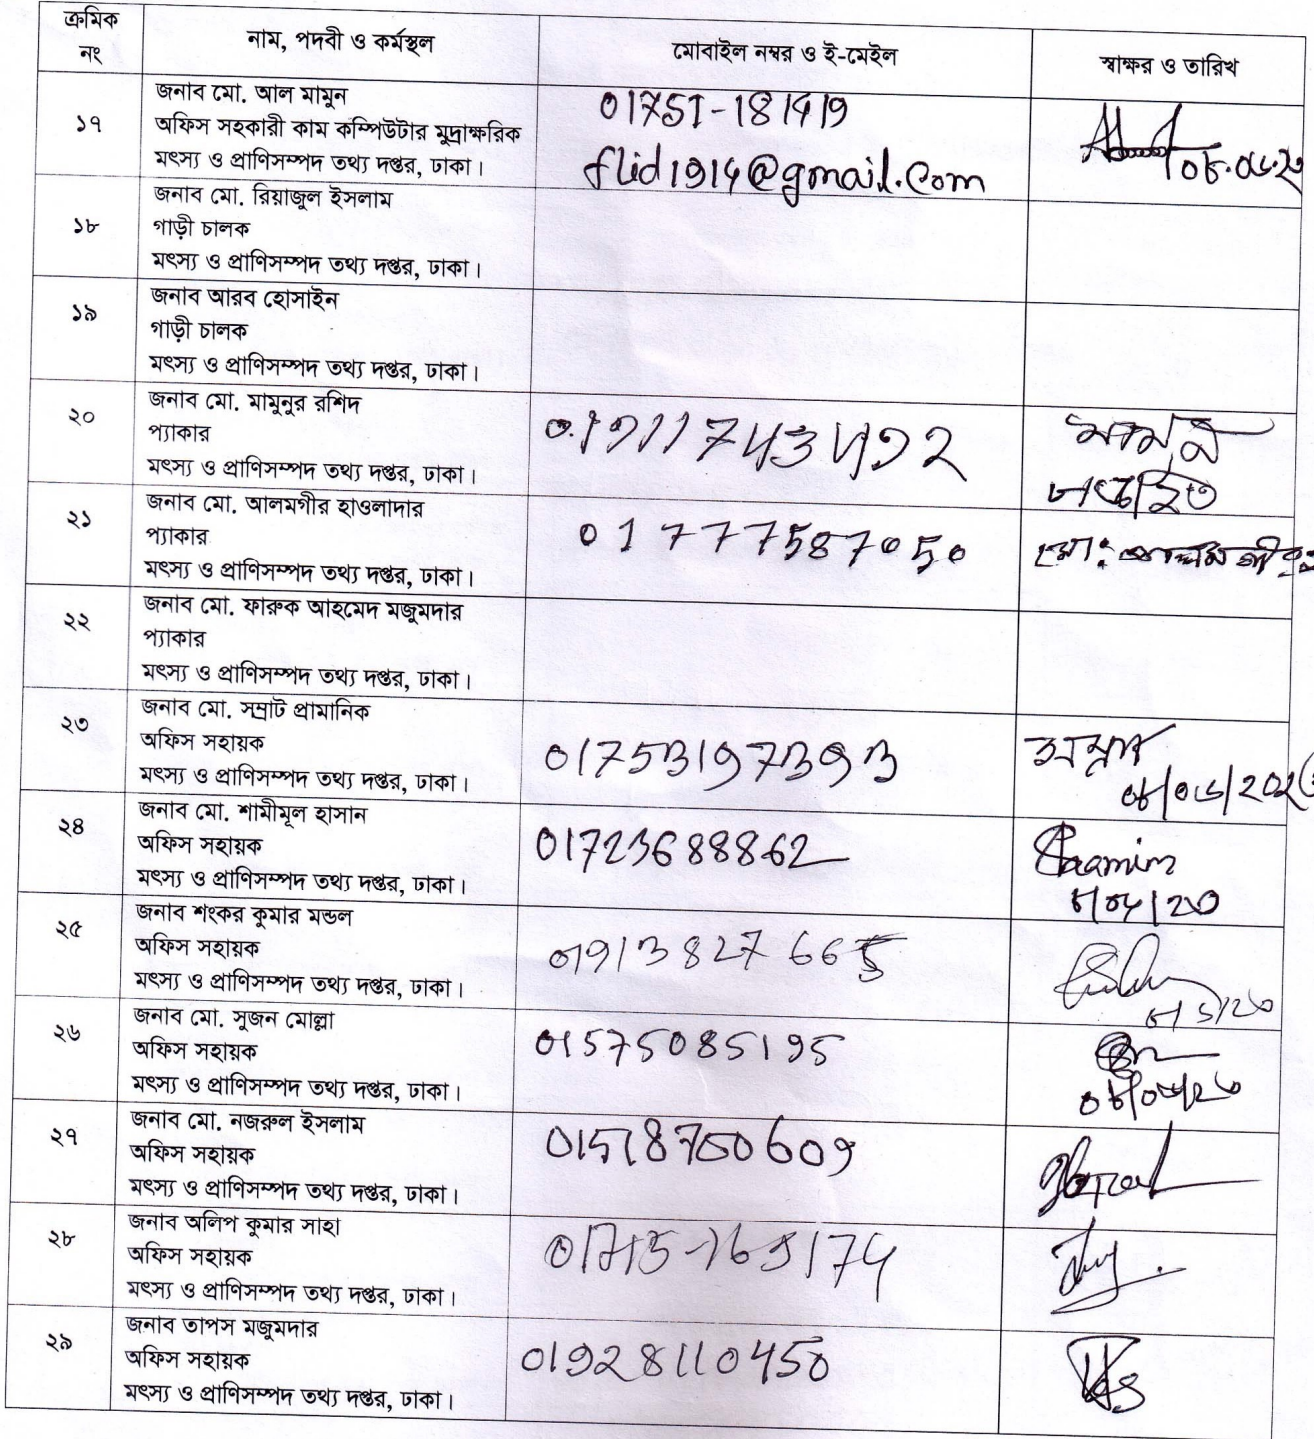 ক্রমিক নং
নাম, পদবী ও কর্মস্থল
মোবাইল নম্বর ও ই-মেইল
স্বাক্ষর ও তারিখ
১৭
জনাব মো. আল মামুন
অফিস সহকারী কাম কম্পিউটার মুদ্রাক্ষরিক
মৎস্য ও প্রাণিসম্পদ তথ্য দপ্তর, ঢাকা।
01751-181419
flid1914@gmail.com
১৮
জনাব মো. রিয়াজুল ইসলাম
গাড়ী চালক
মৎস্য ও প্রাণিসম্পদ তথ্য দপ্তর, ঢাকা।
১৯
জনাব আরব হোসাইন
গাড়ী চালক
মৎস্য ও প্রাণিসম্পদ তথ্য দপ্তর, ঢাকা।
২০
জনাব মো. মামুনুর রশিদ
প্যাকার
মৎস্য ও প্রাণিসম্পদ তথ্য দপ্তর, ঢাকা।
২১
জনাব মো. আলমগীর হাওলাদার
প্যাকার
মৎস্য ও প্রাণিসম্পদ তথ্য দপ্তর, ঢাকা।
01777587050
মো: আলমগীর
২২
জনাব মো. ফারুক আহমেদ মজুমদার
প্যাকার
মৎস্য ও প্রাণিসম্পদ তথ্য দপ্তর, ঢাকা।
২৩
জনাব মো. সম্রাট প্রামানিক
অফিস সহায়ক
মৎস্য ও প্রাণিসম্পদ তথ্য দপ্তর, ঢাকা।
01753197393
সম্রাট
২৪
জনাব মো. শামীমূল হাসান
অফিস সহায়ক
মৎস্য ও প্রাণিসম্পদ তথ্য দপ্তর, ঢাকা।
01723688862
২৫
জনাব শংকর কুমার মন্ডল
অফিস সহায়ক
মৎস্য ও প্রাণিসম্পদ তথ্য দপ্তর, ঢাকা।
01913827665
২৬
জনাব মো. সুজন মোল্লা
অফিস সহায়ক
মৎস্য ও প্রাণিসম্পদ তথ্য দপ্তর, ঢাকা।
01575085195
২৭
জনাব মো. নজরুল ইসলাম
অফিস সহায়ক
মৎস্য ও প্রাণিসম্পদ তথ্য দপ্তর, ঢাকা।
01518750609
২৮
জনাব অলিপ কুমার সাহা
অফিস সহায়ক
মৎস্য ও প্রাণিসম্পদ তথ্য দপ্তর, ঢাকা।
২৯
জনাব তাপস মজুমদার
অফিস সহায়ক
মৎস্য ও প্রাণিসম্পদ তথ্য দপ্তর, ঢাকা।
01928110450